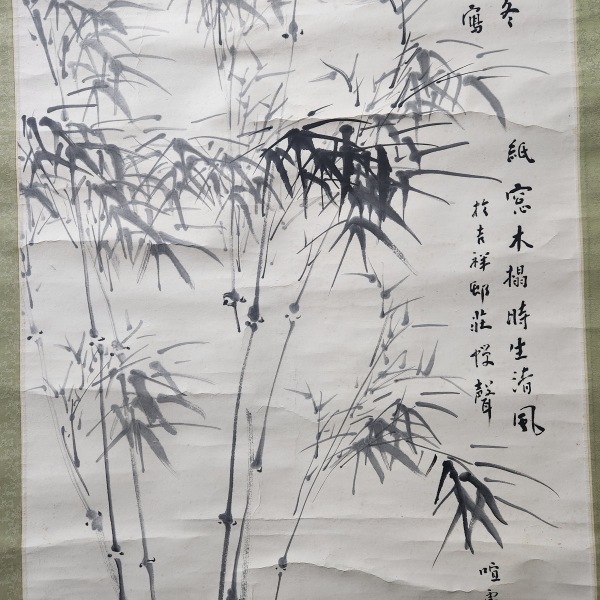 冬 紙窓木榻時生清風
寫 於吉祥邨莊 聲
喧